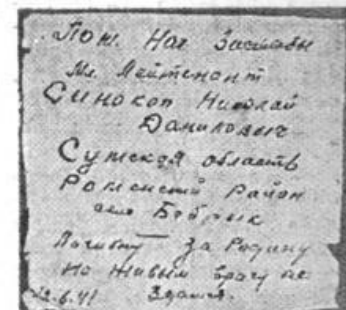 Пом. Нач Заставы
Мл. Лейтенант
Синокоп Николай
Данилович
Сумская область
Роменский Район
село Бобрык
Погибну — За Родину
Но живым врагу не
22.6.41 Здамся.